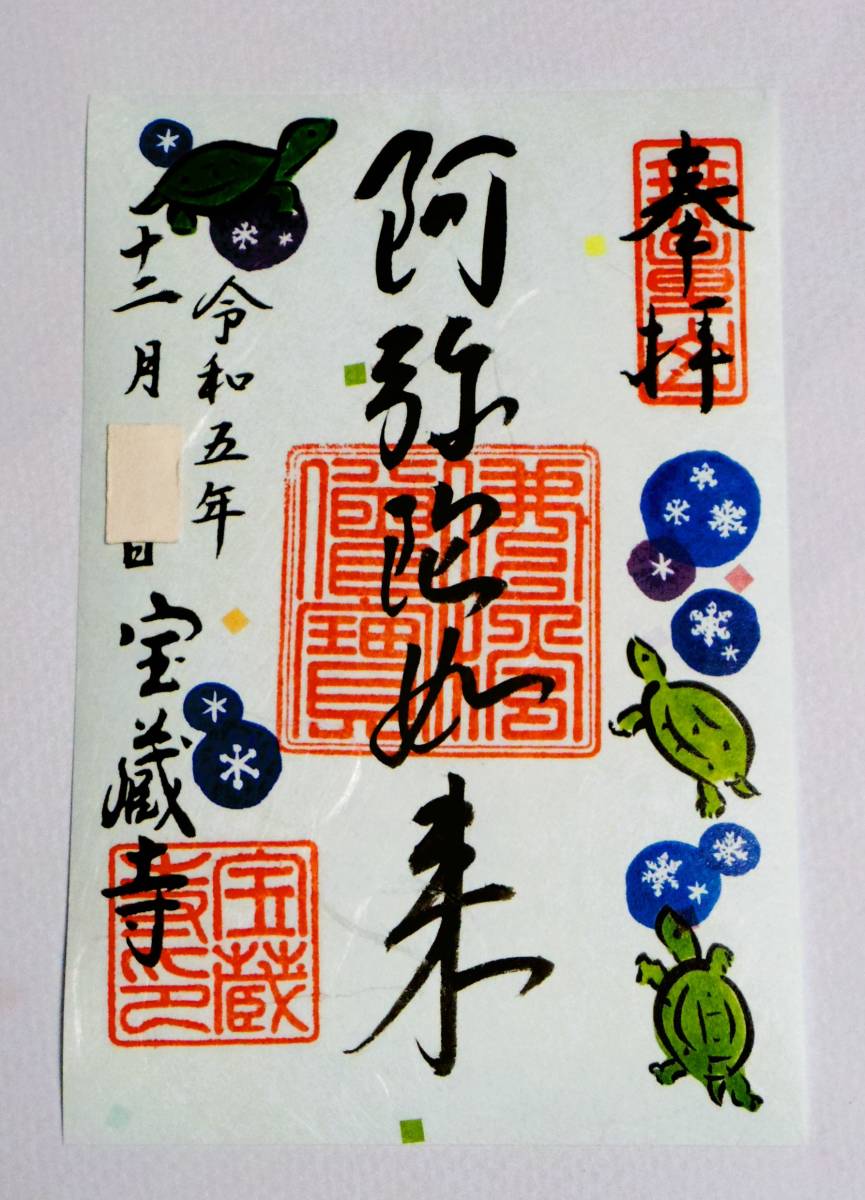 奉拝
阿弥陀如来
令和五年
十二月 日
宝蔵寺
宝蔵
寺印